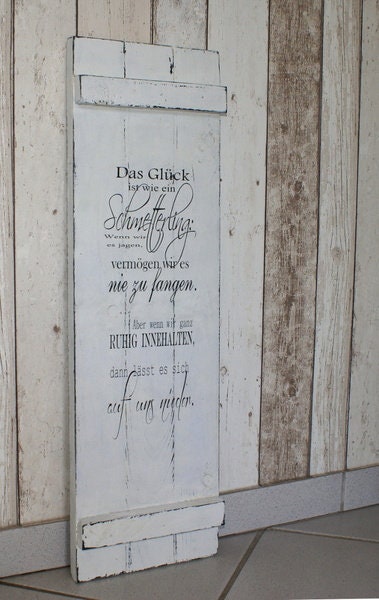 Das Glück
ist wie ein
Schmetterling:
Wenn wir
es jagen,
vermögen wir es
nie zu fangen.
Aber wenn wir ganz
RUHIG INNEHALTEN,
dann lässt es sich
auf uns nieder.